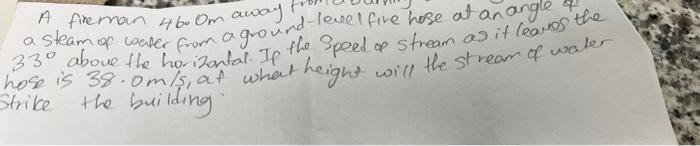 A fireman 460 0m away from a
a steam of water from a ground-level fire hose at an angle of
33° above the horizontal. If the Speed of stream as it leaves the
hose is 38.0m/s, at what height will the stream of water
Strike the building.